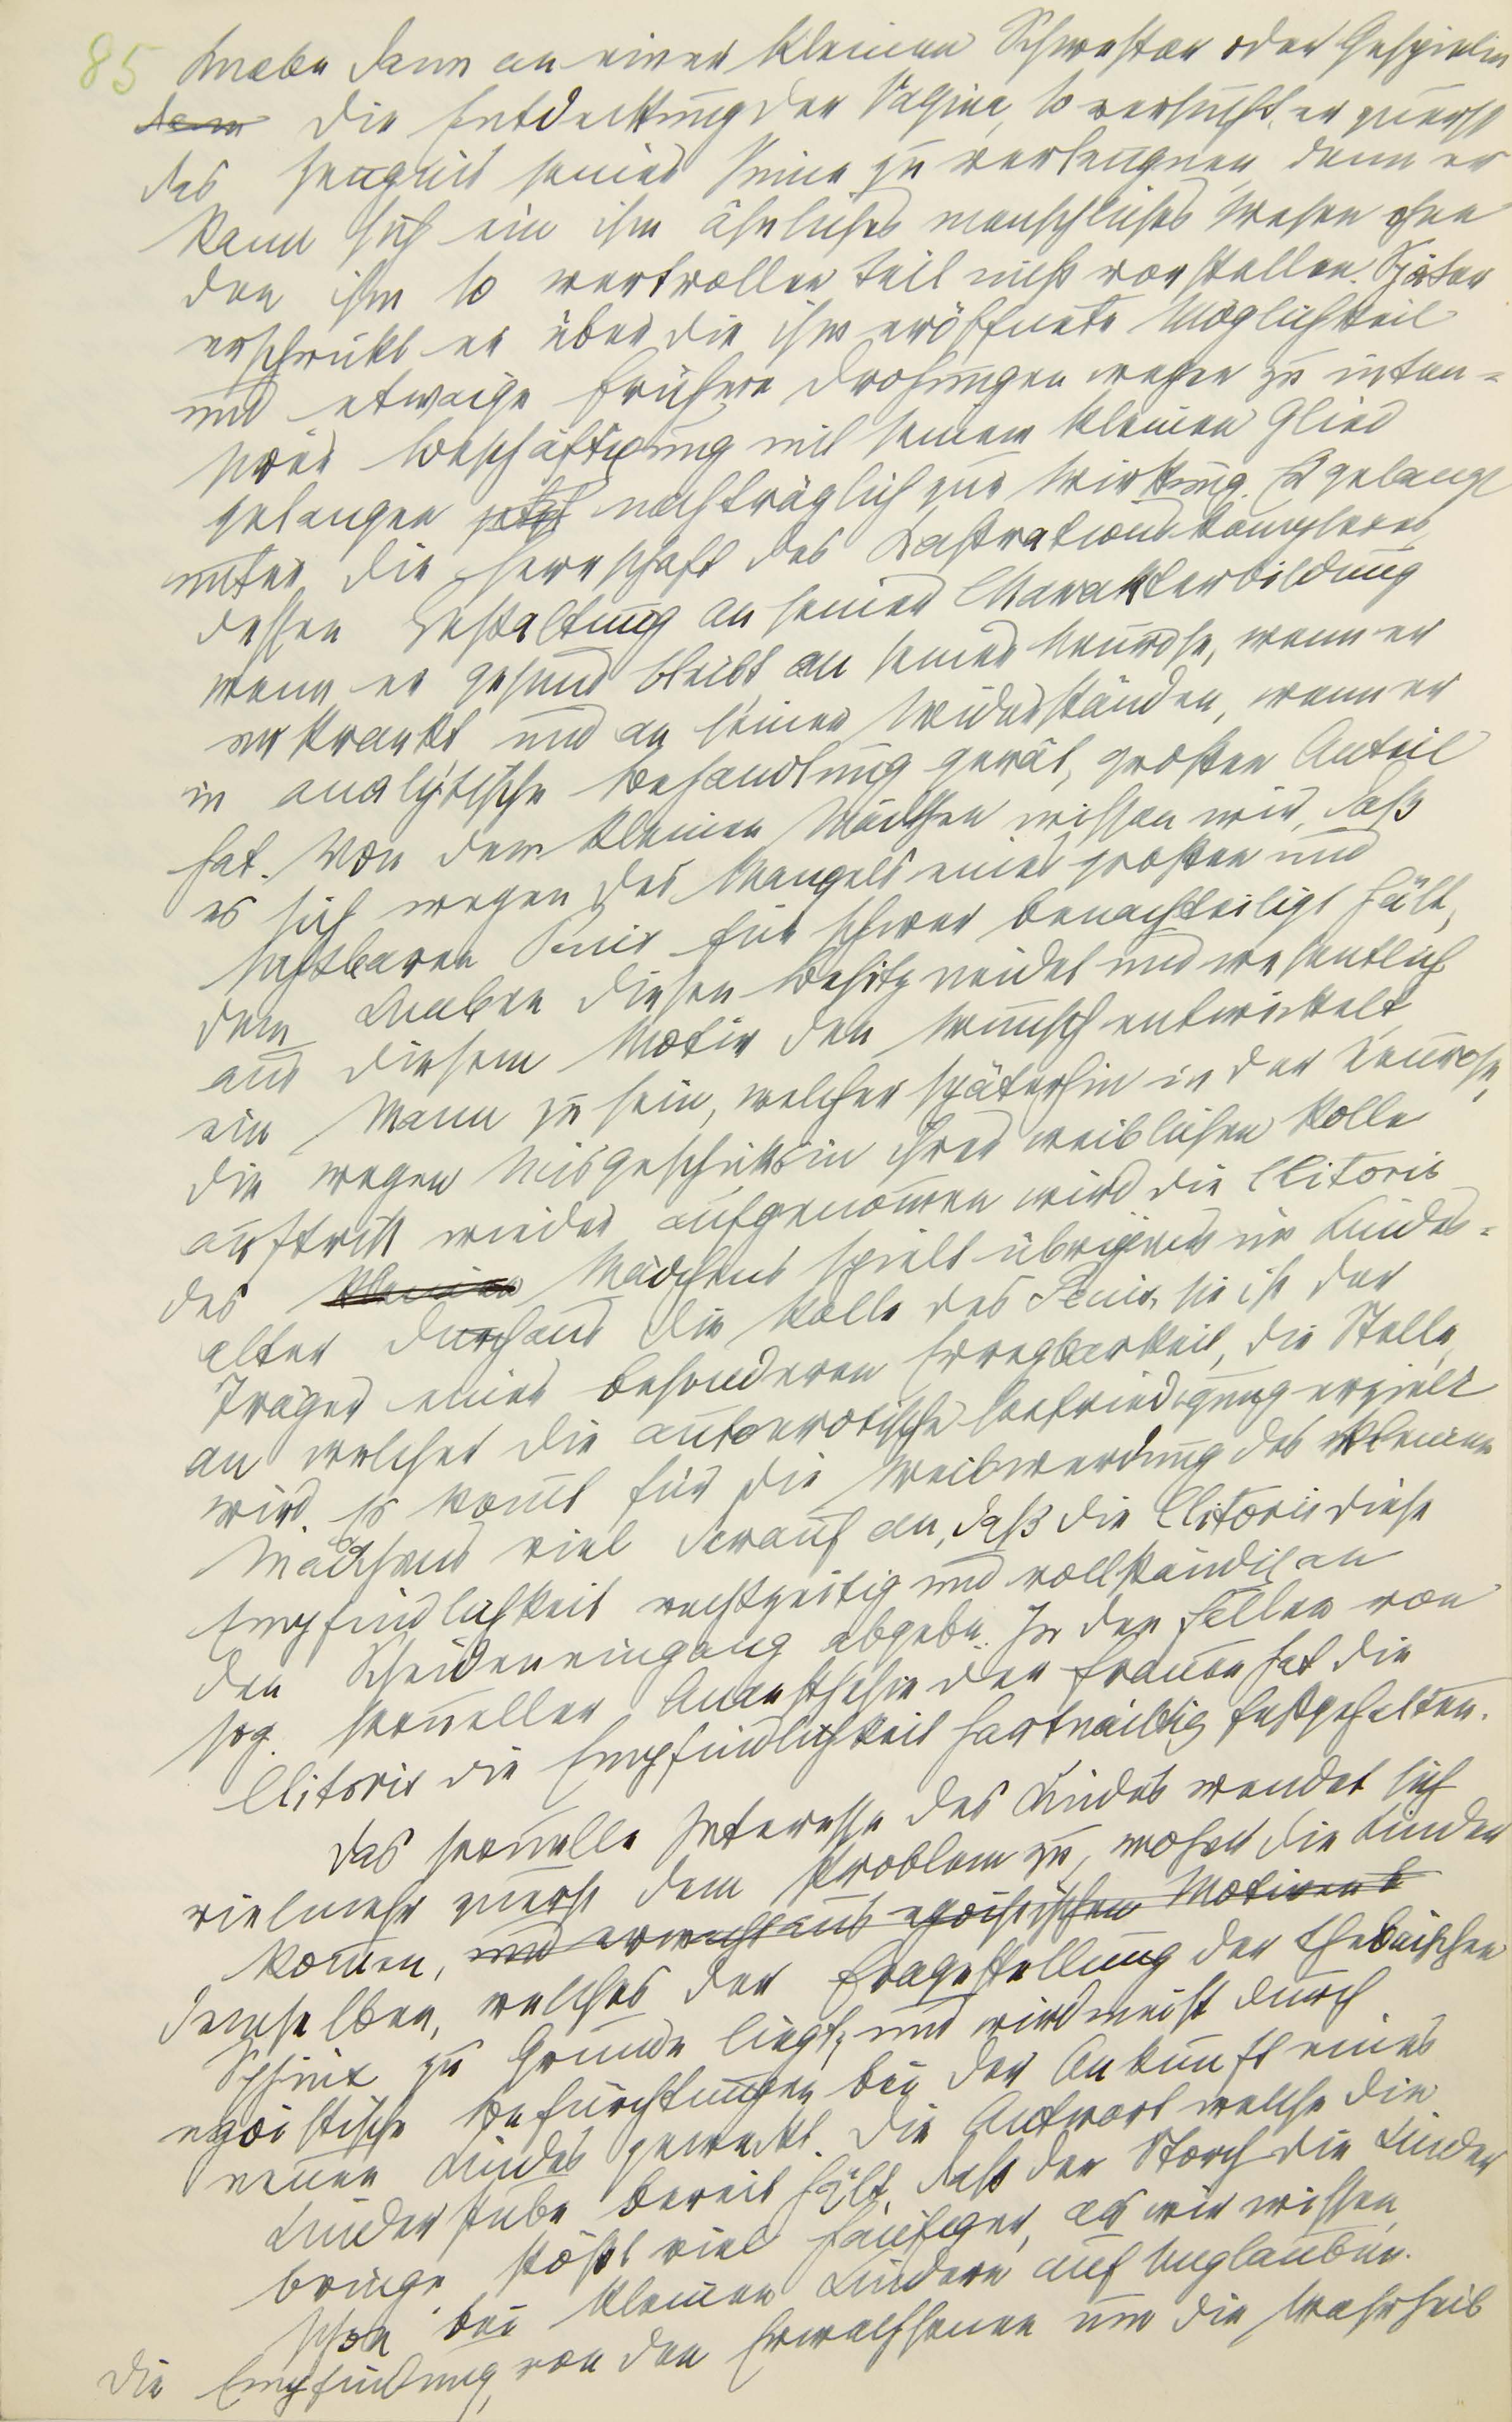 85 Knabe dann an einer kleinen Schwester oder Gespielin
dem die Entdeckung der Vagina, so versucht er zuerst
das Zeugnis seiner Sinne zu verleugnen, denn er
kann sich ein ihm ähnliches menschliches Wesen ohne
den ihm so wertvollen Teil nicht vorstellen. Später
erschrickt er über die ihm eröffnete Möglichkeit
und etwaige frühere Drohungen wegen zu inten=
siver Beschäftigung mit seinem kleinen Glied
gelangen nachträglich zur Wirkung. Er gelangt
unter die Herrschaft des Kastrationskomplexes,
dessen Gestaltung an seiner Charakterbildung
wenn er gesund bleibt, an seiner Neurose, wenn er
erkrankt und an seinen Widerständen, wenn er
in analytische Behandlung gerät, großen Anteil
hat. Von dem kleinen Mädchen wissen wir, daß
es sich wegen des Mangels eines großen und
sichtbaren Penis für schwer benachteiligt hält,
dem Knaben diesen Besitz neidet und wesentlich
aus diesem Motiv den Wunsch entwickelt
ein Mann zu sein, welcher späterhin in der Neurose,
die wegen Misgeschicks in ihrer weiblichen Rolle
auftritt wieder aufgenommen wird. die Clitoris
des kleinen Mädchens spielt übrigens im Kindes=
alter durchaus die Rolle des Penis, sie ist der
Träger einer besonderen Erregbarkeit, die Stelle,
an welcher die autoerotische Befriedigung erzielt
wird. Es kommt für die Weibwerdung des kleinen
Mädchens viel darauf an, daß die Clitoris diese
Empfindlichkeit rechtzeitig und vollständig an
den Scheideneingang abgebe. In den Fällen von
sog. sexueller Anaesthesie der Frauen hat die
Clitoris die Empfindlichkeit hartnäckig festgehalten.
Das sexuelle Interesse des Kindes wendet sich
vielmehr zuerst dem Problem zu, woher die Kinder
kommen, und erwacht aus egoistischen Motiven b
demselben, welches der Fragestellung der thebaischen
Sphinx zu Grunde liegt, und wird meist durch
egoistische Befürchtungen bei der Ankunft eines
neuen Kindes geweckt. Die Antwort welche die
Kinderstube bereit hält, daß der Storch die Kinder
bringe, stößt viel häufiger, als wir wissen,
schon bei kleinen Kindern auf Unglauben.
Die Empfindung, von den Erwachsenen um die Wahrheit